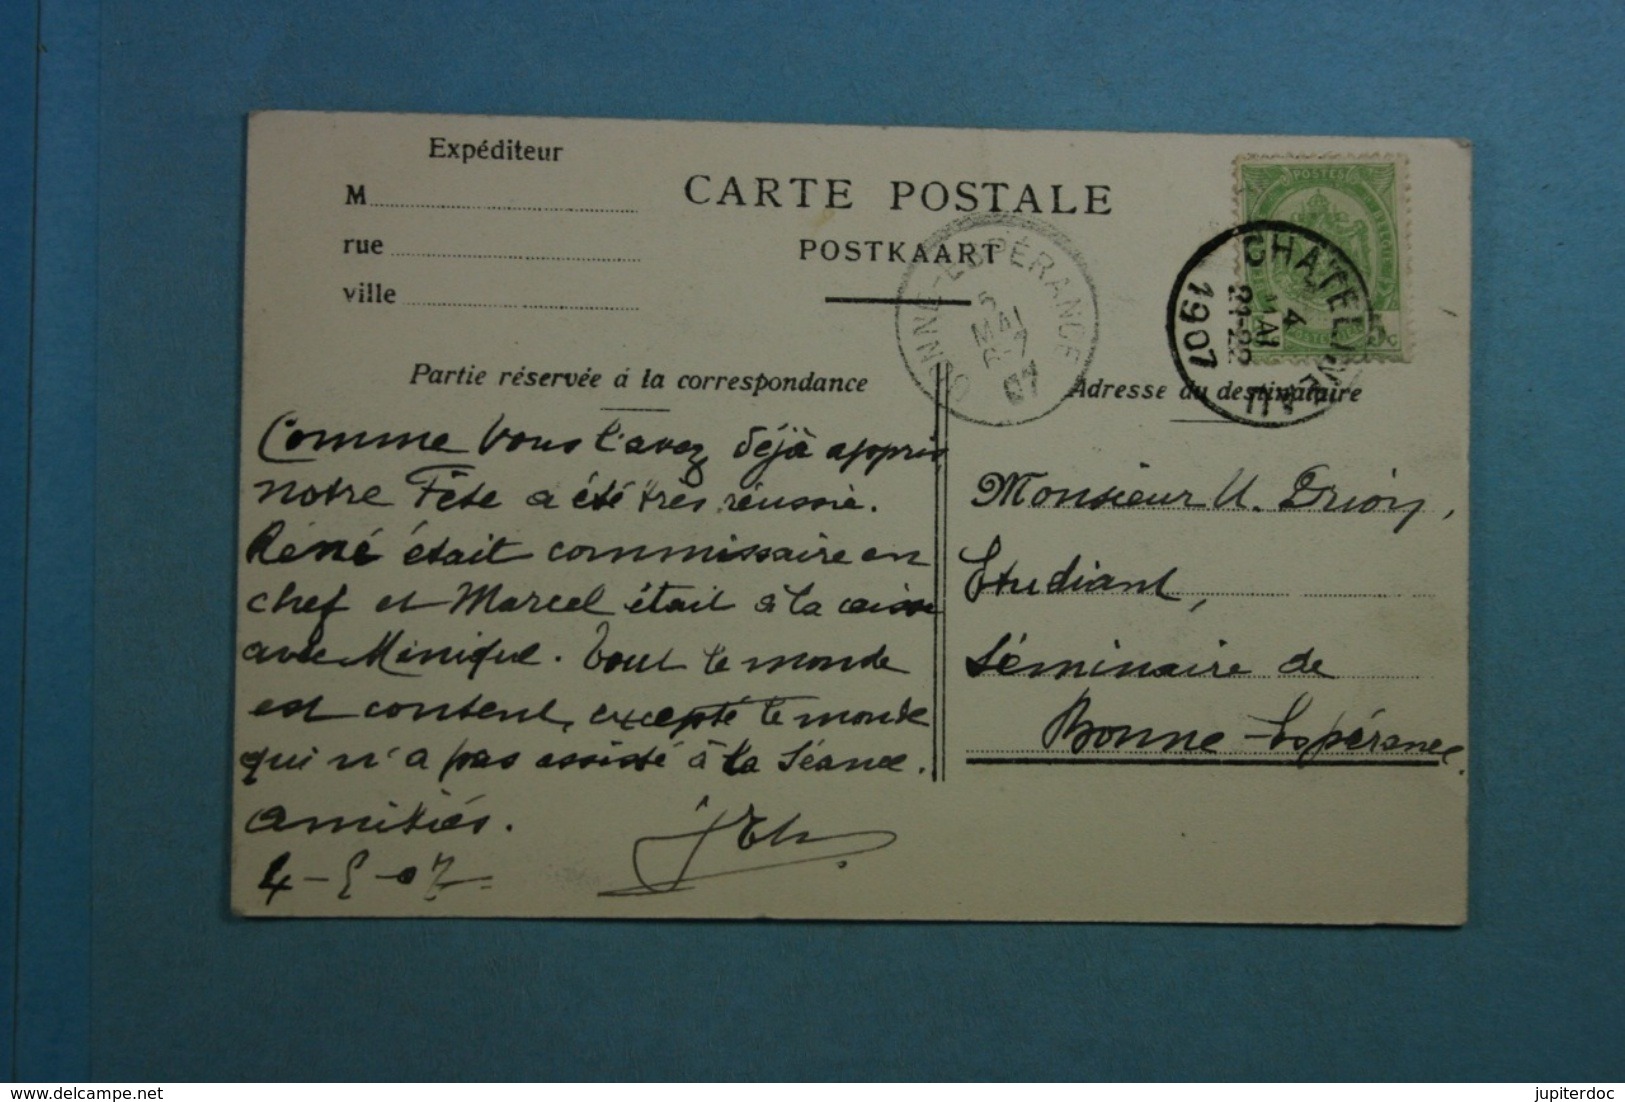 Expéditeur
M
rue
ville
CARTE POSTALE
POSTKAART
BONNE-ESPÉRANCE
5
MAI
6-7
07
POSTES
CHATELINEAU
4
MAI
21-22
1907
Partie réservée á la correspondance
Adresse du destinataire
Comme Vous l'avez déjà appris
notre Fête a été très réussie.
Réné était commissaire en
chef et Marcel était à la caisse
avec Minique. Tout le monde
est content, excepté le monde
qui n'a pas assisté à la Séance.
amitiés.
4-5-07
Monsieur U. Drion,
Etudiant,
Séminaire de
Bonne-Espérance.
delcampe.net
jupiterdoc